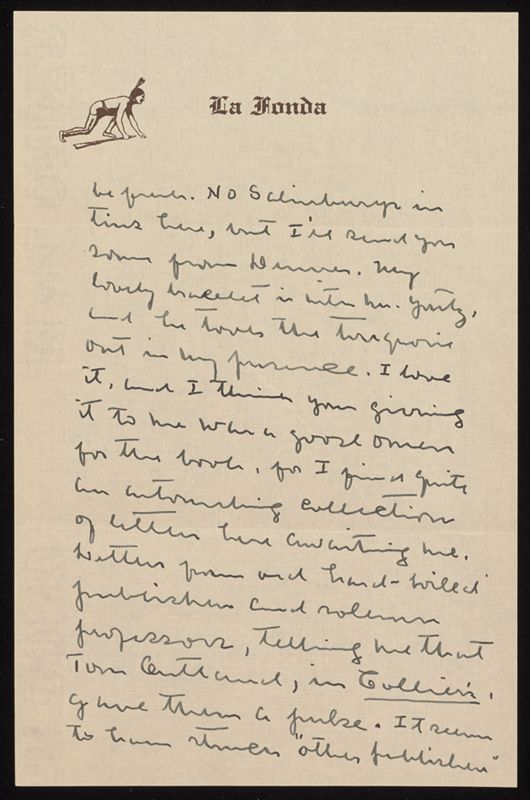 La Fonda
be fresh. No Salisburys in
tins here, but I'll send you
some from Denver. My
lovely bracelet is with Mr. Yontz,
and he took the turquoise
out in my presence. I love
it, and I think your giving
it to me was a good omen
for the book, for I find quite
an astonishing collection
of letters here awaiting me.
Letters from old hard-boiled
publishers and solemn
professors, telling me that
Tom Outland, in Collier's,
gave them a pulse. It seems
to have struck "other publishers"